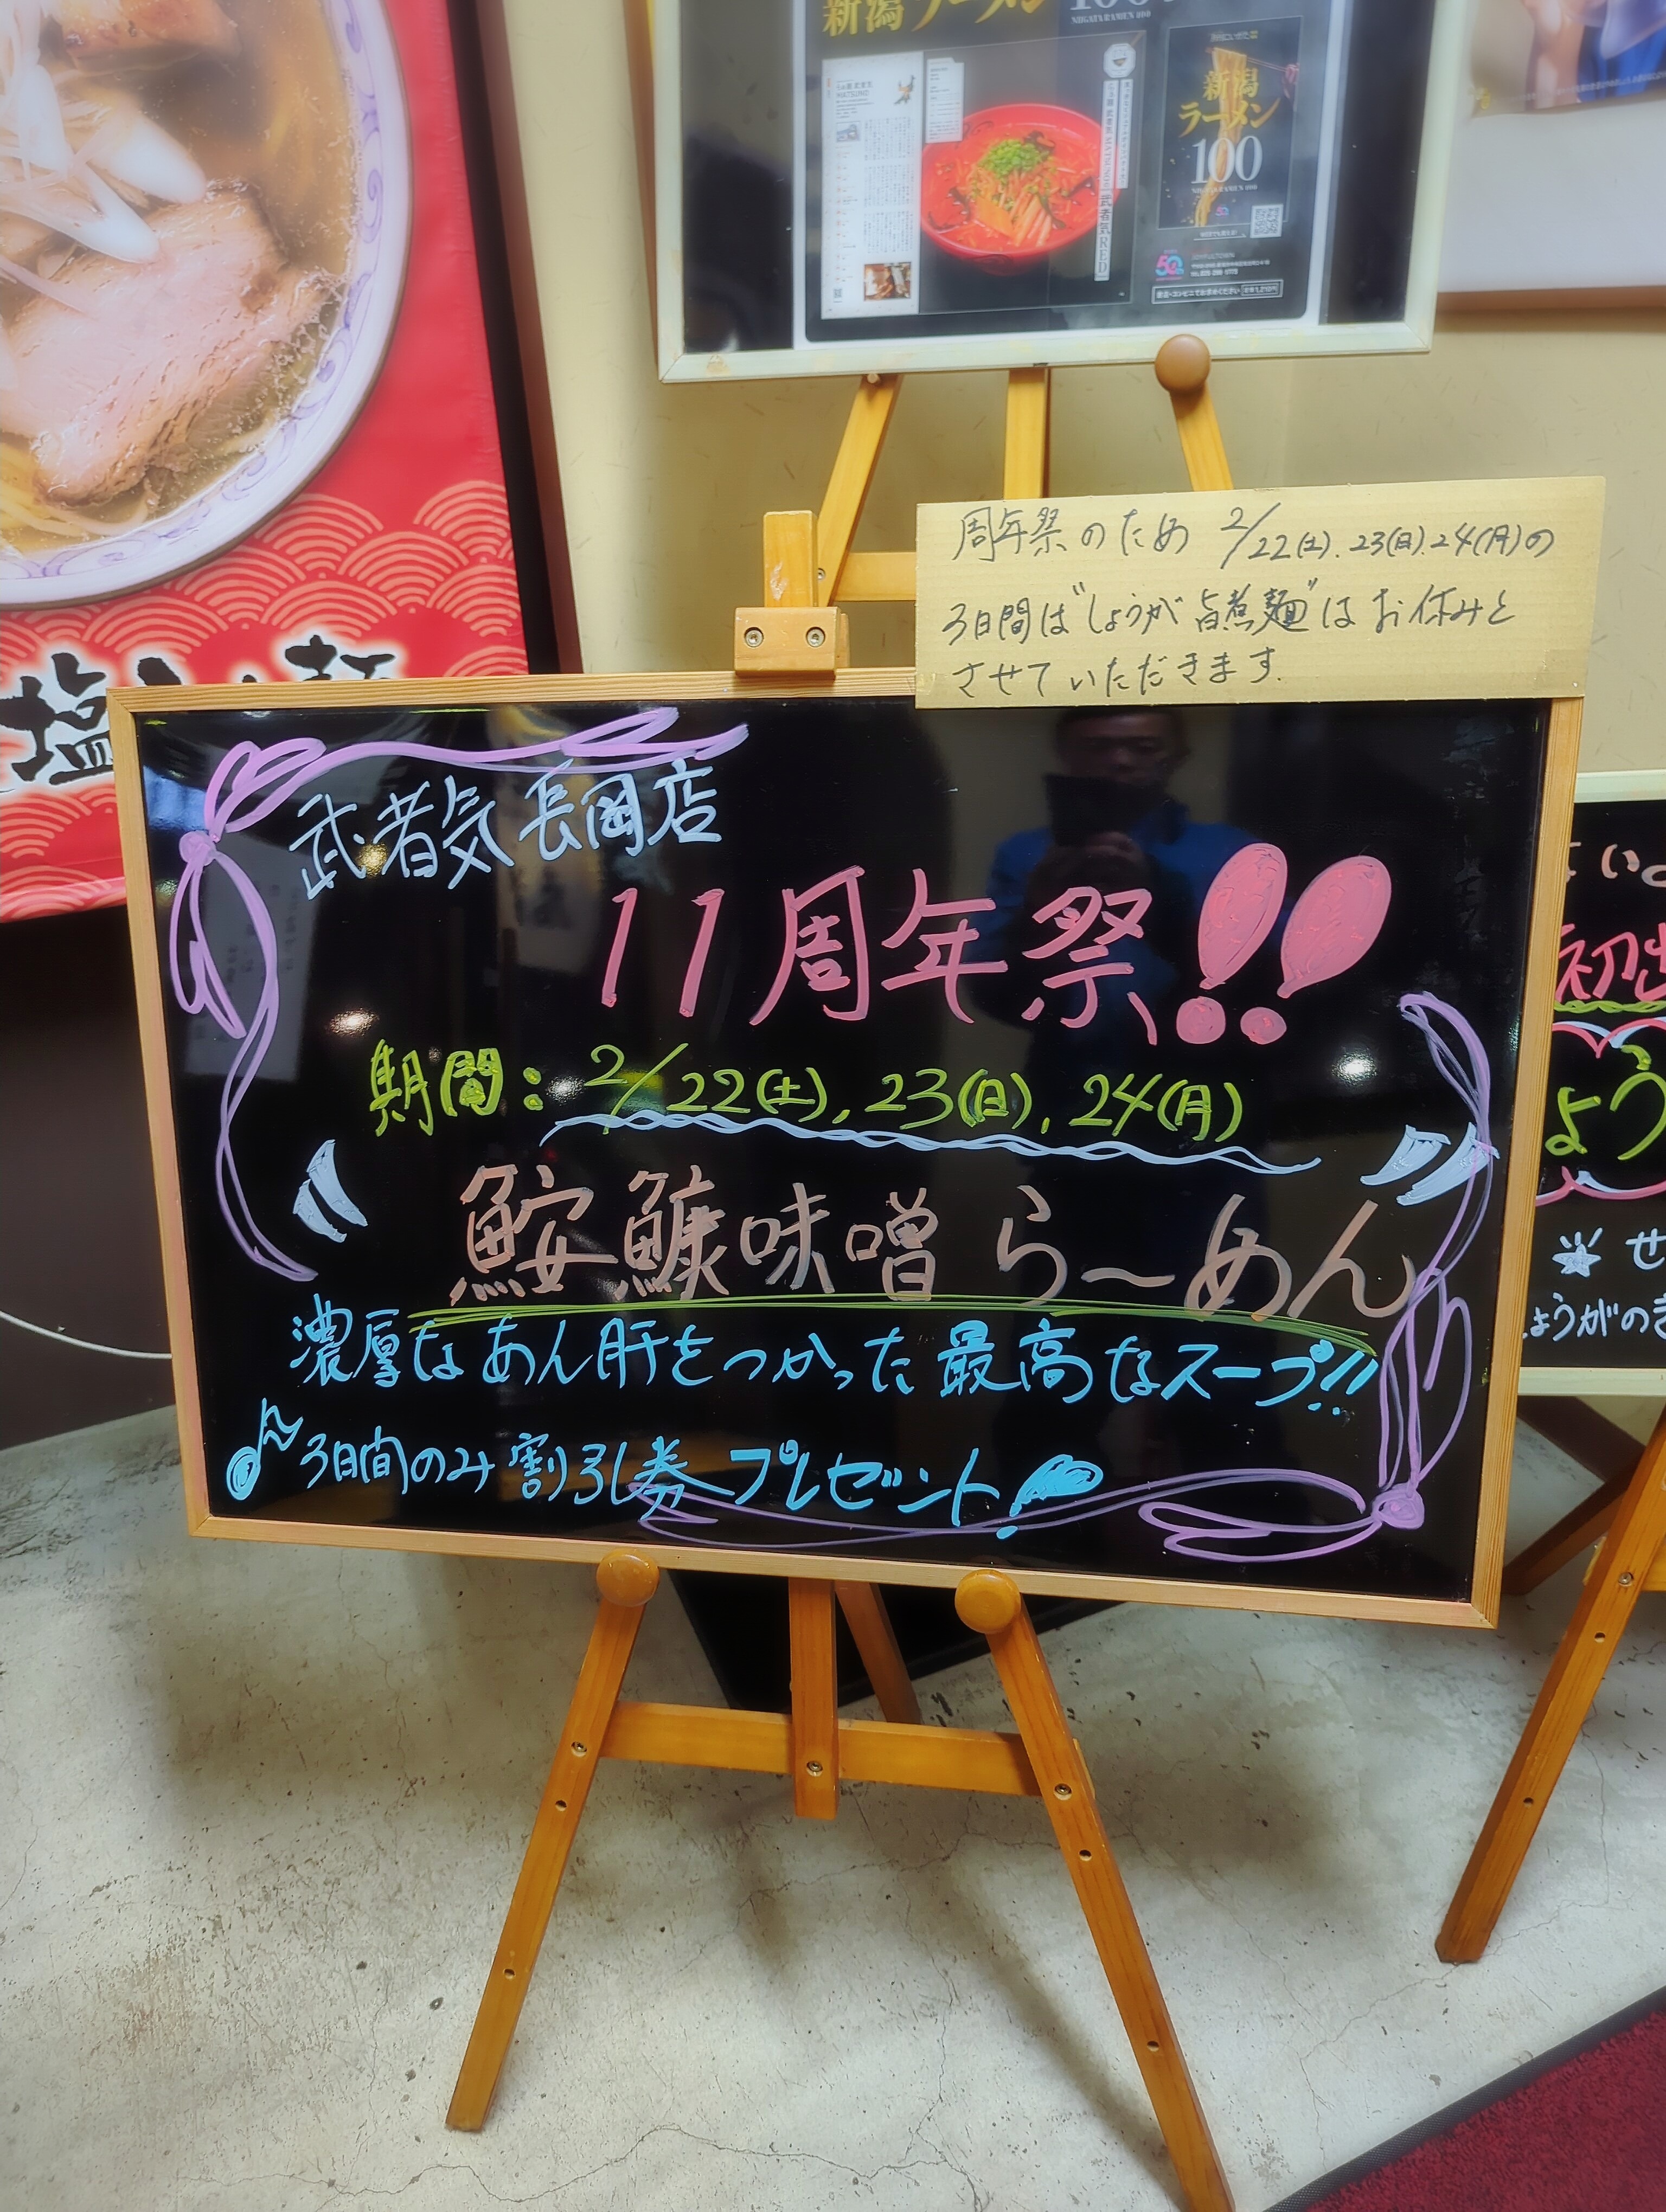 新潟ラーメン
NIIGATA RAMEN 100
MATSUNO
武者気RED
新潟
ラーメン
100
NIIGATA RAMEN 100
周年祭のため 2/22(土).23(日).24(月)の
3日間は"しょうが旨煮麺"はお休みと
させていただきます.
塩らぁ麺
武者気 長岡店
11周年祭!!
期間:2/22(土),23(日),24(月)
鮟鱇味噌らーめん
濃厚なあん肝をつかった最高なスープ!!
♪3日間のみ割引券プレゼント!
初出
ょう
せ
ょうがのき